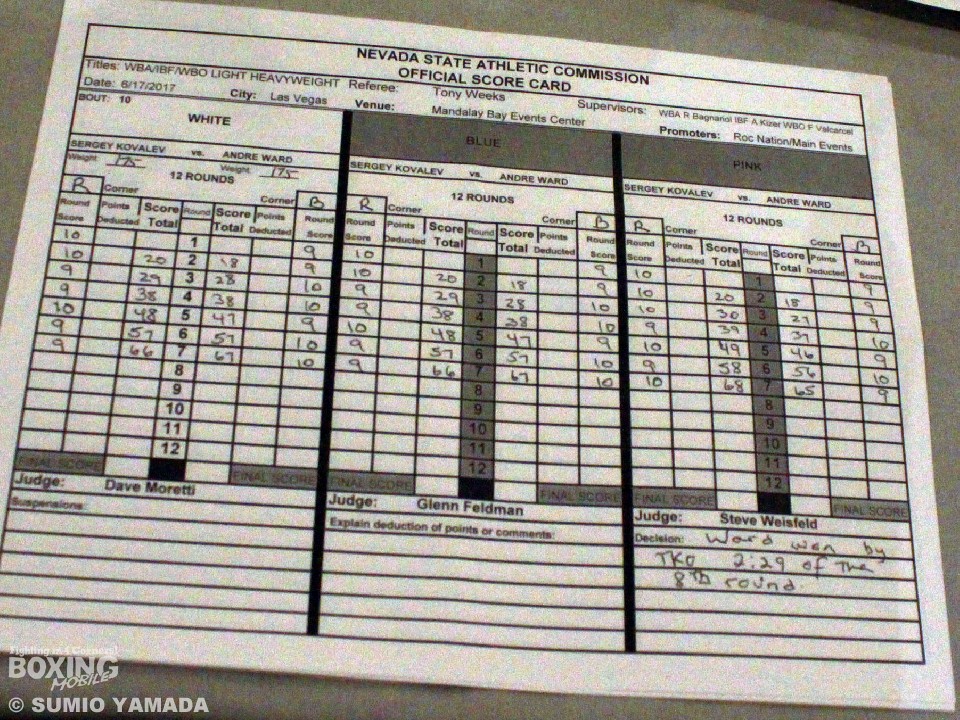 NEVADA STATE ATHLETIC COMMISSION
OFFICIAL SCORE CARD
Titles: WBA/IBF/WBO LIGHT HEAVYWEIGHT Referee: Tony Weeks Supervisors: WBA R Bagnariol IBF A Kizer WBO F Valcarcel
Date: 6/17/2017 City: Las Vegas Venue: Mandalay Bay Events Center Promoters: Roc Nation/Main Events
BOUT: 10
WHITE
SERGEY KOVALEV vs. ANDRE WARD
Weight 175 Weight 175
12 ROUNDS
R Corner Corner B
Round Score Points Deducted Score Total Round Score Total Points Deducted Round Score
10 1 9
10 20 2 18 9
9 29 3 28 10
9 38 4 38 10
10 48 5 47 9
9 57 6 57 10
9 66 7 67 10
8
9
10
11
12
FINAL SCORE FINAL SCORE
Judge: Dave Moretti
Suspensions:
BLUE
SERGEY KOVALEV vs. ANDRE WARD
12 ROUNDS
R Corner Corner B
Round Score Points Deducted Score Total Round Score Total Points Deducted Round Score
10 1 9
10 20 2 18 9
9 29 3 28 10
9 38 4 38 10
10 48 5 47 9
9 57 6 57 10
9 66 7 67 10
8
9
10
11
12
FINAL SCORE FINAL SCORE
Judge: Glenn Feldman
Explain deduction of points or comments:
PINK
SERGEY KOVALEV vs. ANDRE WARD
12 ROUNDS
R Corner Corner B
Round Score Points Deducted Score Total Round Score Total Points Deducted Round Score
10 1 9
10 20 2 18 9
10 30 3 27 9
9 39 4 37 10
10 49 5 46 9
9 58 6 56 10
10 68 7 65 9
8
9
10
11
12
FINAL SCORE FINAL SCORE
Judge: Steve Weisfeld
Decision: Ward won by
TKO 2:29 of the
8th round.
Fighting in 4 Corners!
BOXING
MOBILE
© SUMIO YAMADA